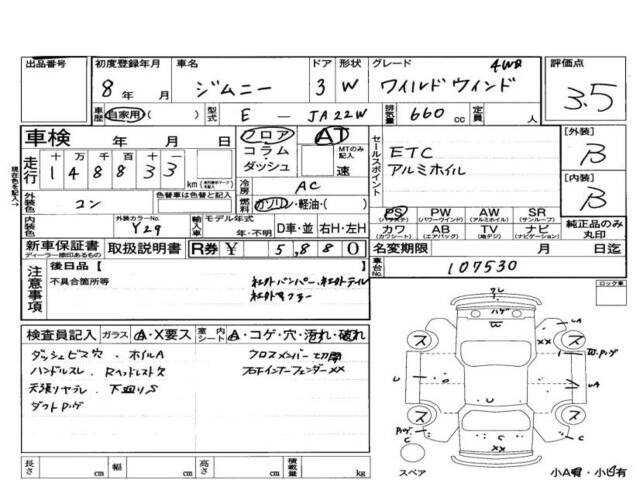 出品番号 初度登録年月 車名 ドア 形状 グレード 評価点
8年 月 ジムニー 3 W 4WD ワイルドウィンド 3.5
車歴 自家用 ( ) 型式 E - JA22W 排気量 660 cc 定員 人
車検 年 月 日
走行 十万千百十
1 4 8 8 3 3 km
フロア コラム・ダッシュ AT MTのみ記入 速
冷房 AC
燃料 ガソリン・軽油・( )
セールスポイント
ETC
アルミホイル
[外装] B
[内装] B
外装色 コン 色替車は色替と記入
内装色 外装カラーNo. Y29 輸入車 モデル年式 年・不明 D車・並 右H・左H
PS (パワステ) PW (パワーウィンド) AW (アルミホイル) SR (サンルーフ)
カワ (カワシート) AB (エアバッグ) TV (地デジ) ナビ (ナビゲーション)
純正品のみ丸印
新車保証書 ディーラー捺印あるもの 取扱説明書 R券 ¥ 5,880
名変期限 月 日迄
車台No. 107530
現在色を記入→
注意事項
後日品 [ ]
不具合箇所等
社外バンパー、社外テイル
社外マフラー
ロック車
検査員記入 ガラス A・X要ス 室内シート A・コゲ・穴・汚れ・破れ
ダッシュビス穴、ホイルA クロスメンバー切開
ハンドルスレ、Rヘッドレスト欠 右インナーフェンダーXX
天張リヤラレ、下廻りS
ダクトPハゲ
ワレ
ハゲ
W
A
XX
W.Pハゲ
U
A
ス
ス
ス
ス
Pハゲ
C
C
XX
スペア
小A有・小凹有
長さ cm 幅 cm 高さ cm 積載量 kg